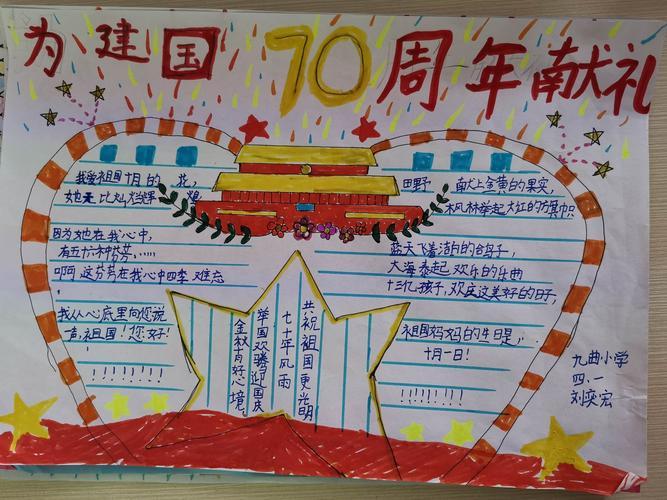 为建国70周年献礼
我爱祖国十月的 花,
她是 比灿烂辉 煌
因为她在我心中,
有五十六种芬芳……
啊 这芬芳在我心中四季 难忘
!
我从心底里向您说
声,祖国!您好!
!!!!!!!
田野 献上金黄的果实,
枫林举起大红的旗帜
蓝天飞着洁白的鸽子,
大海奏起 欢乐的乐曲
十三亿孩子,欢庆这美好的日子,
祖国妈妈的生日是,
十月一日!
!!!!!!!
共祝祖国更光明
七十年风雨
举国欢腾迎国庆
金秋有好心境。
九曲小学
四.一
刘奕宏